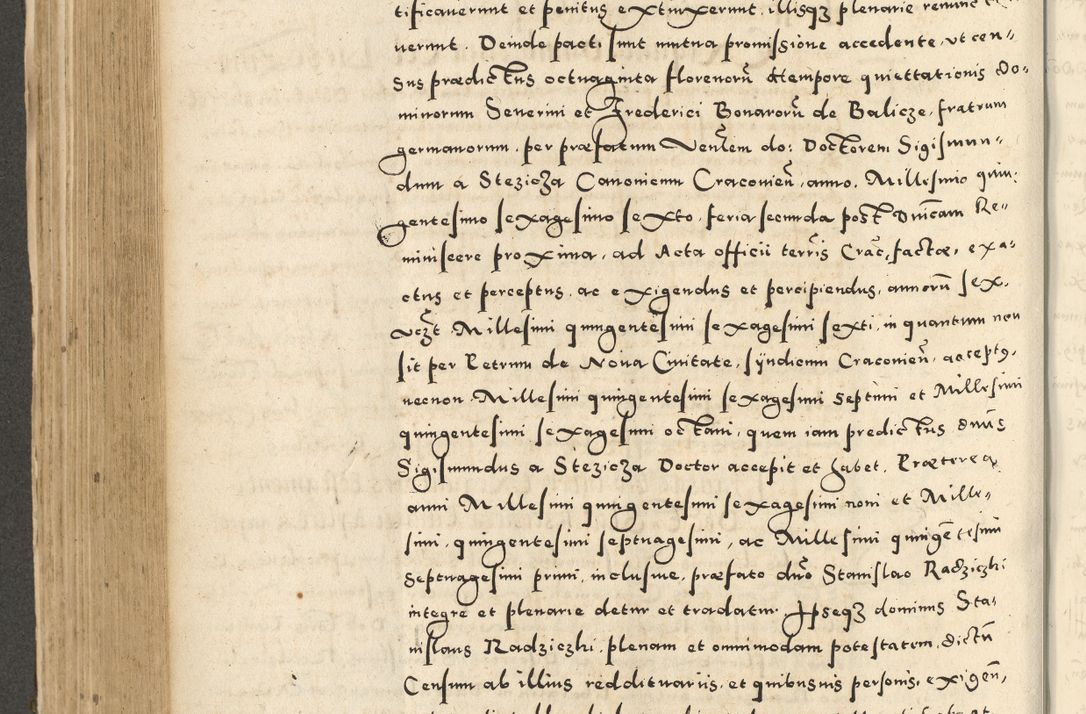 tificaverunt et penitus extinxerunt, illisqz plenarie renunc
uerunt. Deinde pacti sunt mutua promissione accedente, vt cen„
sus prædictus octuaginta florenorū à tempore quiettationis do„
minorum Seuerini et Frederici Bonarorū de Balicze, fratrum
germanorum, per præfatum Venlem do: Doctorem Sigismun„
dum a Stezicza Canonicum Cracouien̄, anno, Millesimo quin:
gentesimo sexagesimo sexto, feria secunda post Dnīcam Re„
miniscere proxima, ad Acta officii terrīs Crac̄, factæ, exa„
ctus et perceptus, ac exigendus et percipiendus, annorū sex,
vczt Millesimi quingentesimi sexagesimi sexti, in quantum non
sit per Petrum de Noua Ciuitate, sÿndicum Cracouien̄, acceptꝰ,
necnon Millesimi quingentesimi sexagesimi septimi et Millesimi
quingentesimi sexagesimi octaui, quem iam predictus dnūs
Sigismundus a Stezicza Doctor accepit et habet. Præterea
anni Millesimi quingentesimi sexagesimi noni et Mille„
simi, quingentesimi septuagesimi, ac Millesimi quingētesimi
septuagesimi primi, inclusiue, præfato dnō Stanislao Radziczhi
integre et plenarie detur et tradatur. Ipseqz dominus Sta„
nislaus Radziczhi, plenam et omnimodam potestatem, dictū
Censum ab illius reddituariis, et quibusuis personis, exigen̄,